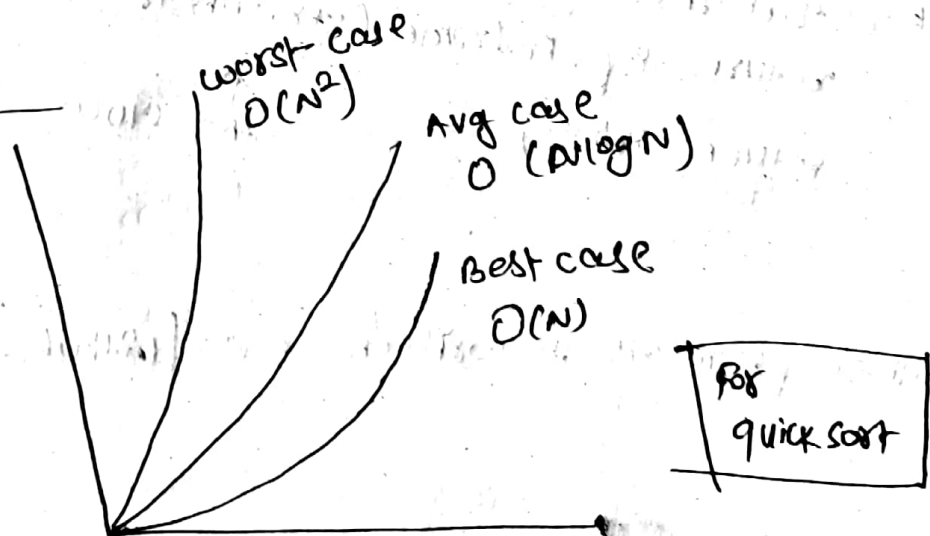 worst case
O(N²)
Avg case
O (NlogN)
Best case
O(N)
For
quick sort